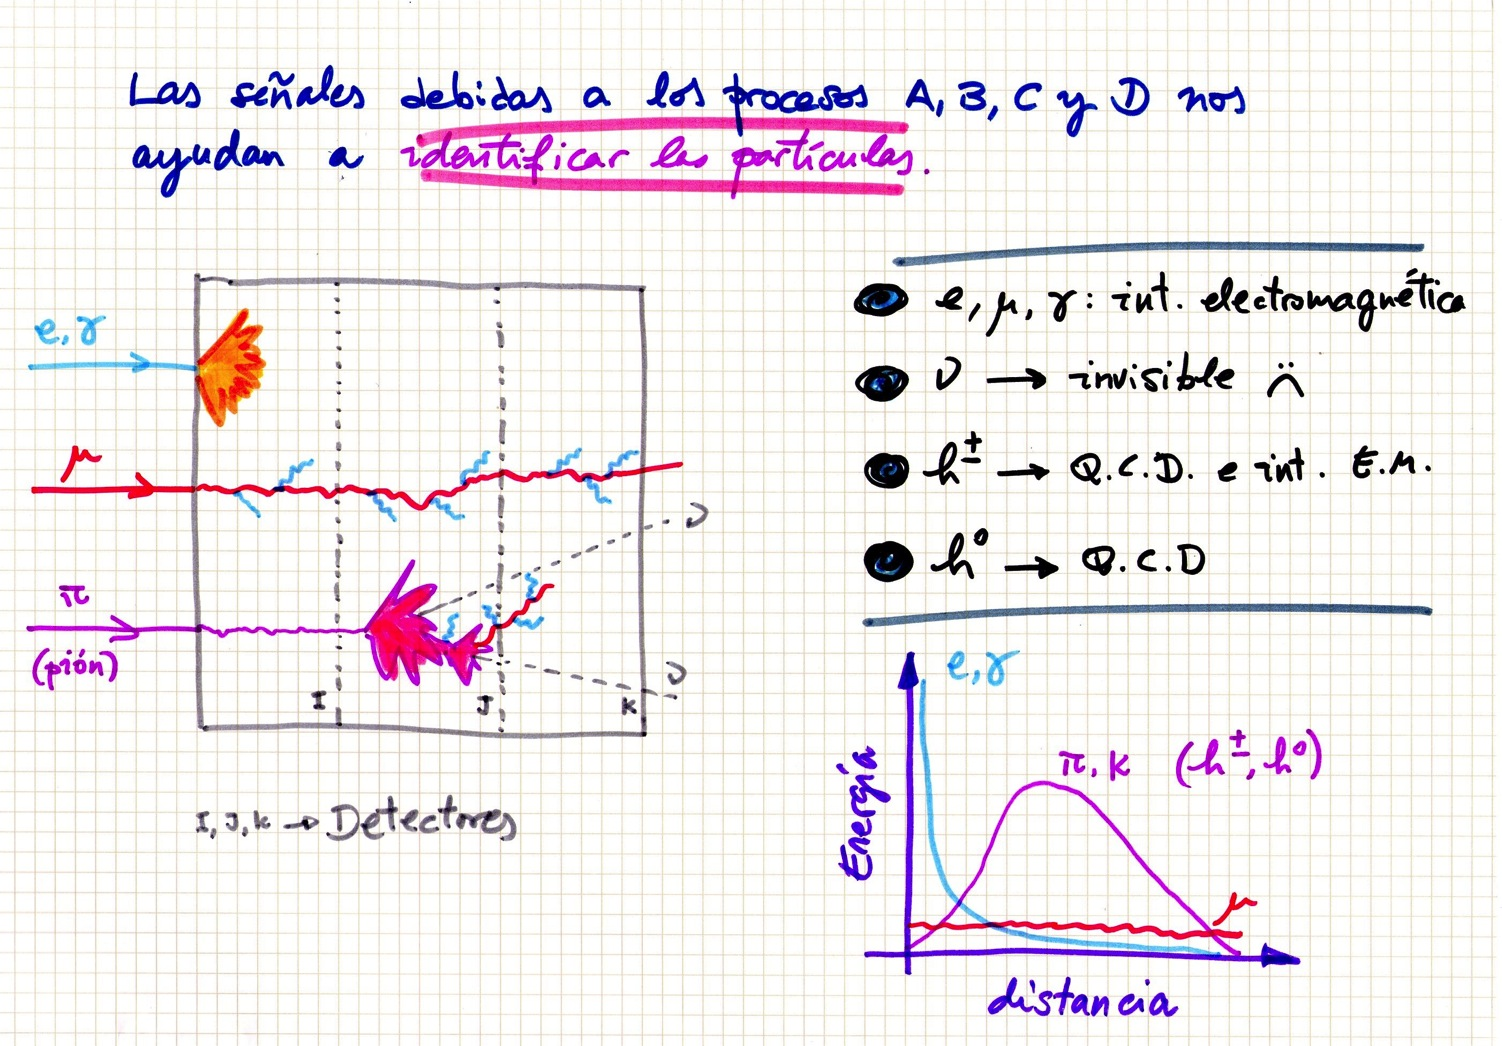 Las señales debidas a los procesos A, B, C y D nos
ayudan a identificar las partículas.
e, γ
μ
π
(pión)
ν
ν
I
J
K
I, J, K → Detectores
e, μ, γ: int. electromagnética
ν → invisible :(
h± → Q.C.D. e int. E.M.
h⁰ → Q.C.D
e, γ
π, K (h±, h⁰)
μ
Energía
distancia